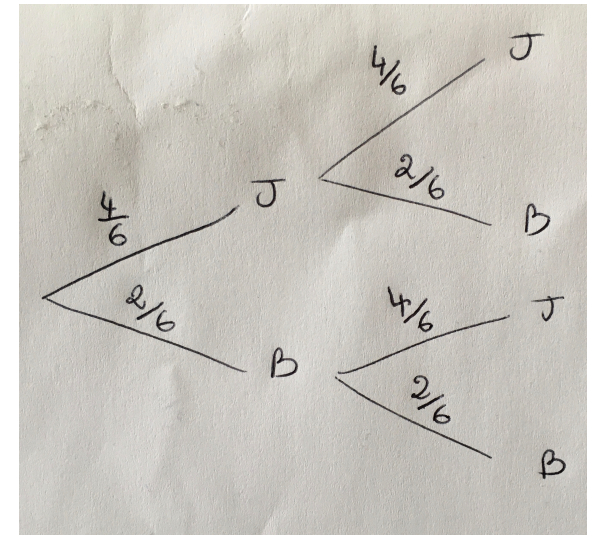 4/6 J
2/6 B
4/6 J
2/6 B
4/6 J
2/6 B